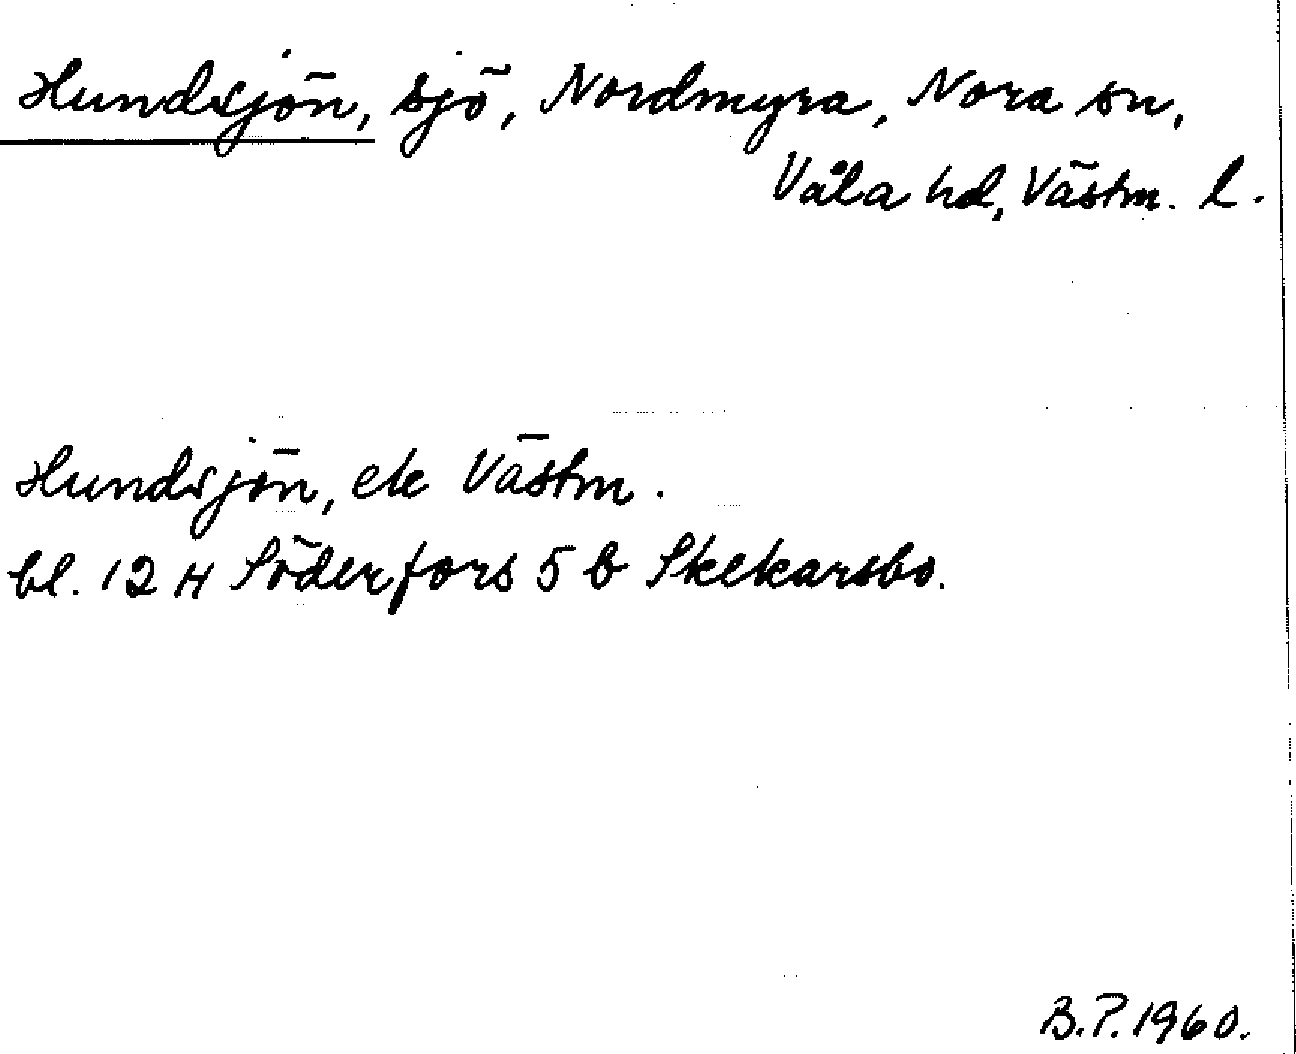 Hundsjön, sjö, Nordmyra, Nora sn,
Våla hd, Västm. l.
Hundsjön, ek Västm.
bl. 12 H Söderfors 5 b Skekarsbo.
B.P. 1960.